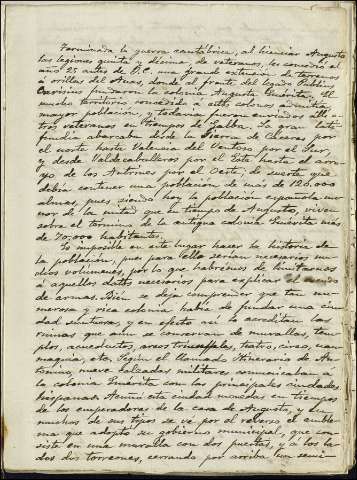 Terminada la guerra cantábrica, al licenciar Augusto
las legiones quinta y décima, de veteranos, les concedió el
año 25 antes de J.C. una grande extension de terrenos
á orillas del Anas, donde al frente del legado Publio
Carisius fundaron la colonia Augusta Emérita. El
mucho territorio concedido á estos colonos admitía
mayor poblacion, y todavia fueron enviados allí o-
tros veteranos en tiempo de Galba. La gran exten-
abarcaba desde la Sierra de Claros por
el norte hasta Valencia del Ventoso por el Sur,
y desde Valdecaballeros por el Este hasta el arro-
yo de los Antrines por el Oeste; de suerte que
debia contener una poblacion de más de 120,000
almas, pues siendo hoy la poblacion española me-
nor de la mitad que en tiempo de Augusto, viven
sobre el término de la antigua colonia Emérita más
de 70,000 habitantes.
Es imposible en este lugar hacer la historia de
la poblacion, pues para ello serían necesarios mu-
chos volúmenes, por lo que habremos de limitarnos
á aquellos datos necesarios para explicar el escudo
de armas. Bien se deja comprender que tan nu-
merosa y rica colonia había de fundar una ciu-
dad suntuosa, y en efecto así lo acreditan las
ruinas que aun se conservan de murallas, tem-
plos, acueductos, arcos triunfales, teatro, circo, nau-
maquia, etc. Según el llamado Itinerario de An-
tonino, nueve calzadas militares comunicaban á
la colonia Emérita con las principales ciudades
hispanas. Acuñó esta ciudad monedas en tiempos
de los emperadores de la casa de Augusto, y en
muchos de sus tipos se vé por el reverso el emble-
ma que adoptó su gobierno municipal, que con-
siste en una muralla con dos puertas, y á los la-
dos dos torreones, cerrando por arriba un semi-